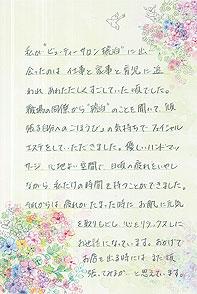 私が"ビューティーサロン琥珀"に出い
会ったのは 仕事と家事と育児に追
われ あわただしくすごしていた頃でした。
職場の同僚から"琥珀"のことを聞いて、"頑
張る自分へのごほうび"の気持ちでフェイシャル
エステをしていただきました。優しいハンドマッ
サージ、心地よい空間で 日頃の疲れをいやし
ながら、私だけの時間を持つことができました。
それからは 疲れがたまった時に お肌に元気
を取りもどし、心もリラックスしに
お世話になっています。おかげで
お店を出る時には また頑
張ってみるか と思えています。